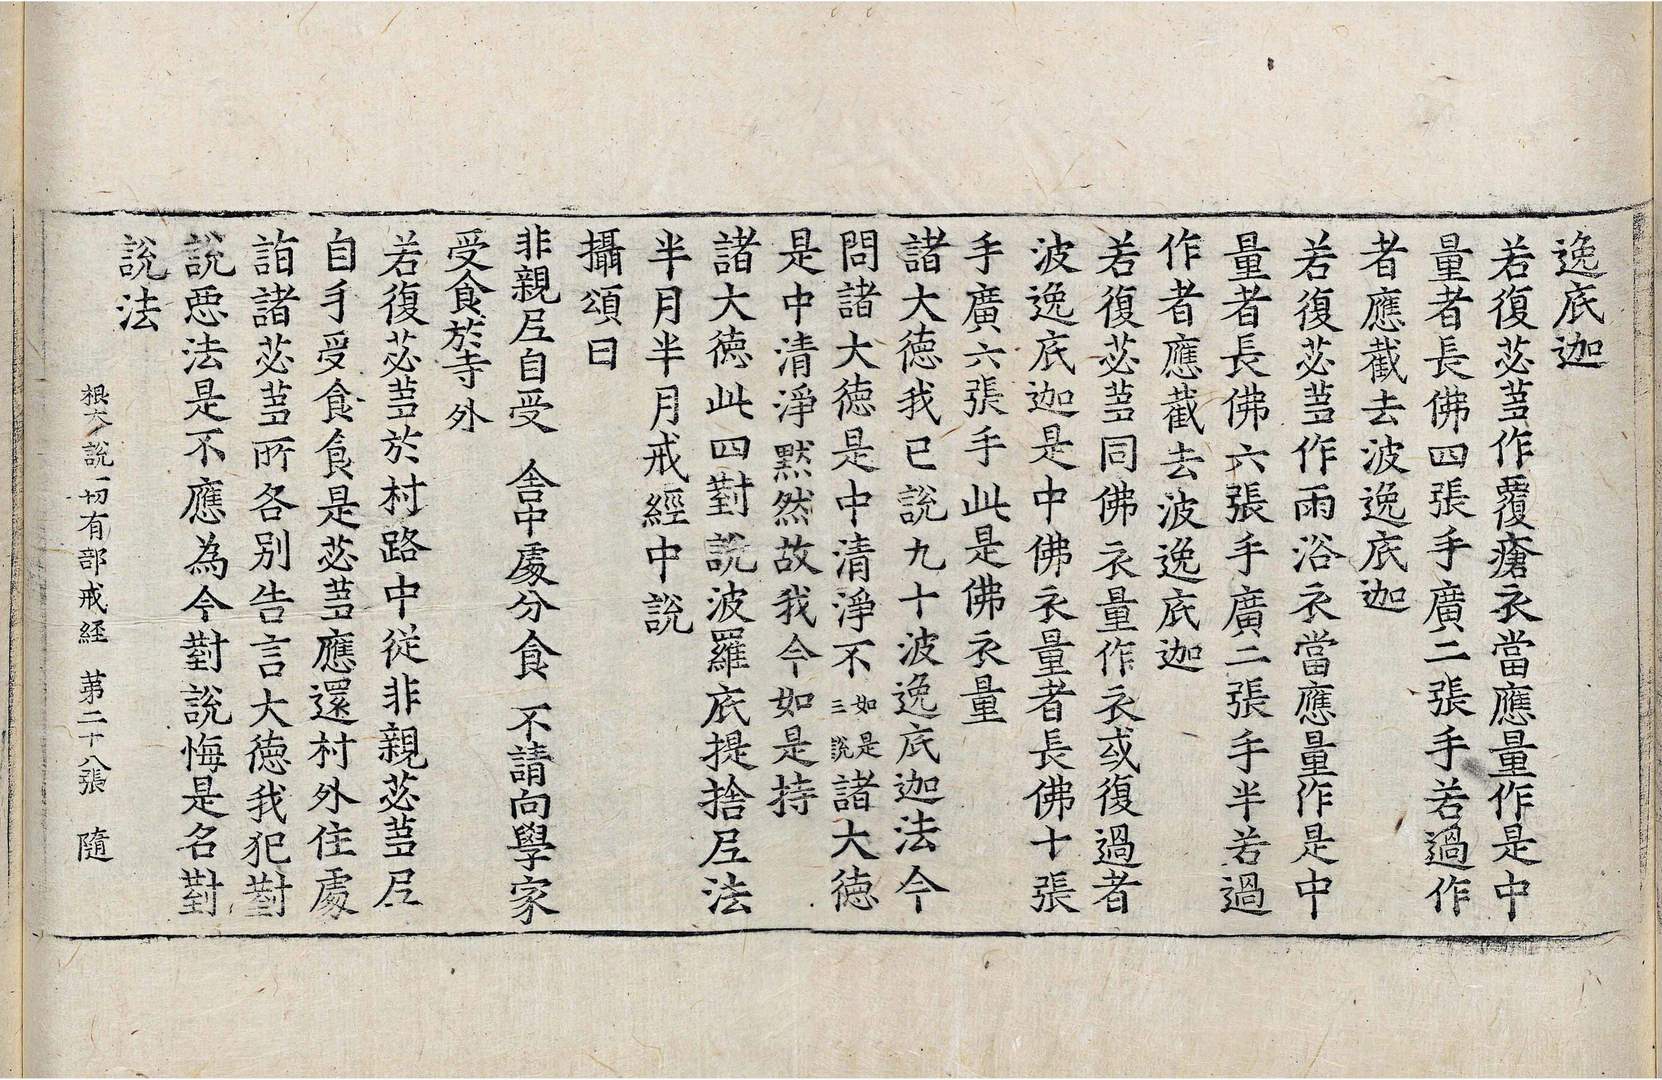 逸底迦
若復苾蒭作覆瘡衣當應量作是中
量者長佛四張手廣二張手若過作
者應截去波逸底迦
若復苾蒭作雨浴衣當應量作是中
量者長佛六張手廣二張手半若過
作者應截去波逸底迦
若復苾蒭同佛衣量作衣或復過者
波逸底迦是中佛衣量者長佛十張
手廣六張手此是佛衣量
諸大德我已說九十波逸底迦法今
問諸大德是中清淨不如是三說諸大德
是中清淨默然故我今如是持
諸大德此四對說波羅底提捨尼法
半月半月戒經中說
攝頌曰
非親尼自受　舍中處分食　不請向學家
受食於寺外
若復苾蒭於村路中從非親苾蒭尼
自手受食食是苾蒭應還村外住處
詣諸苾蒭所各別告言大德我犯對
說惡法是不應為今對說悔是名對
說法
根本說一切有部戒経　第二十八張　隨